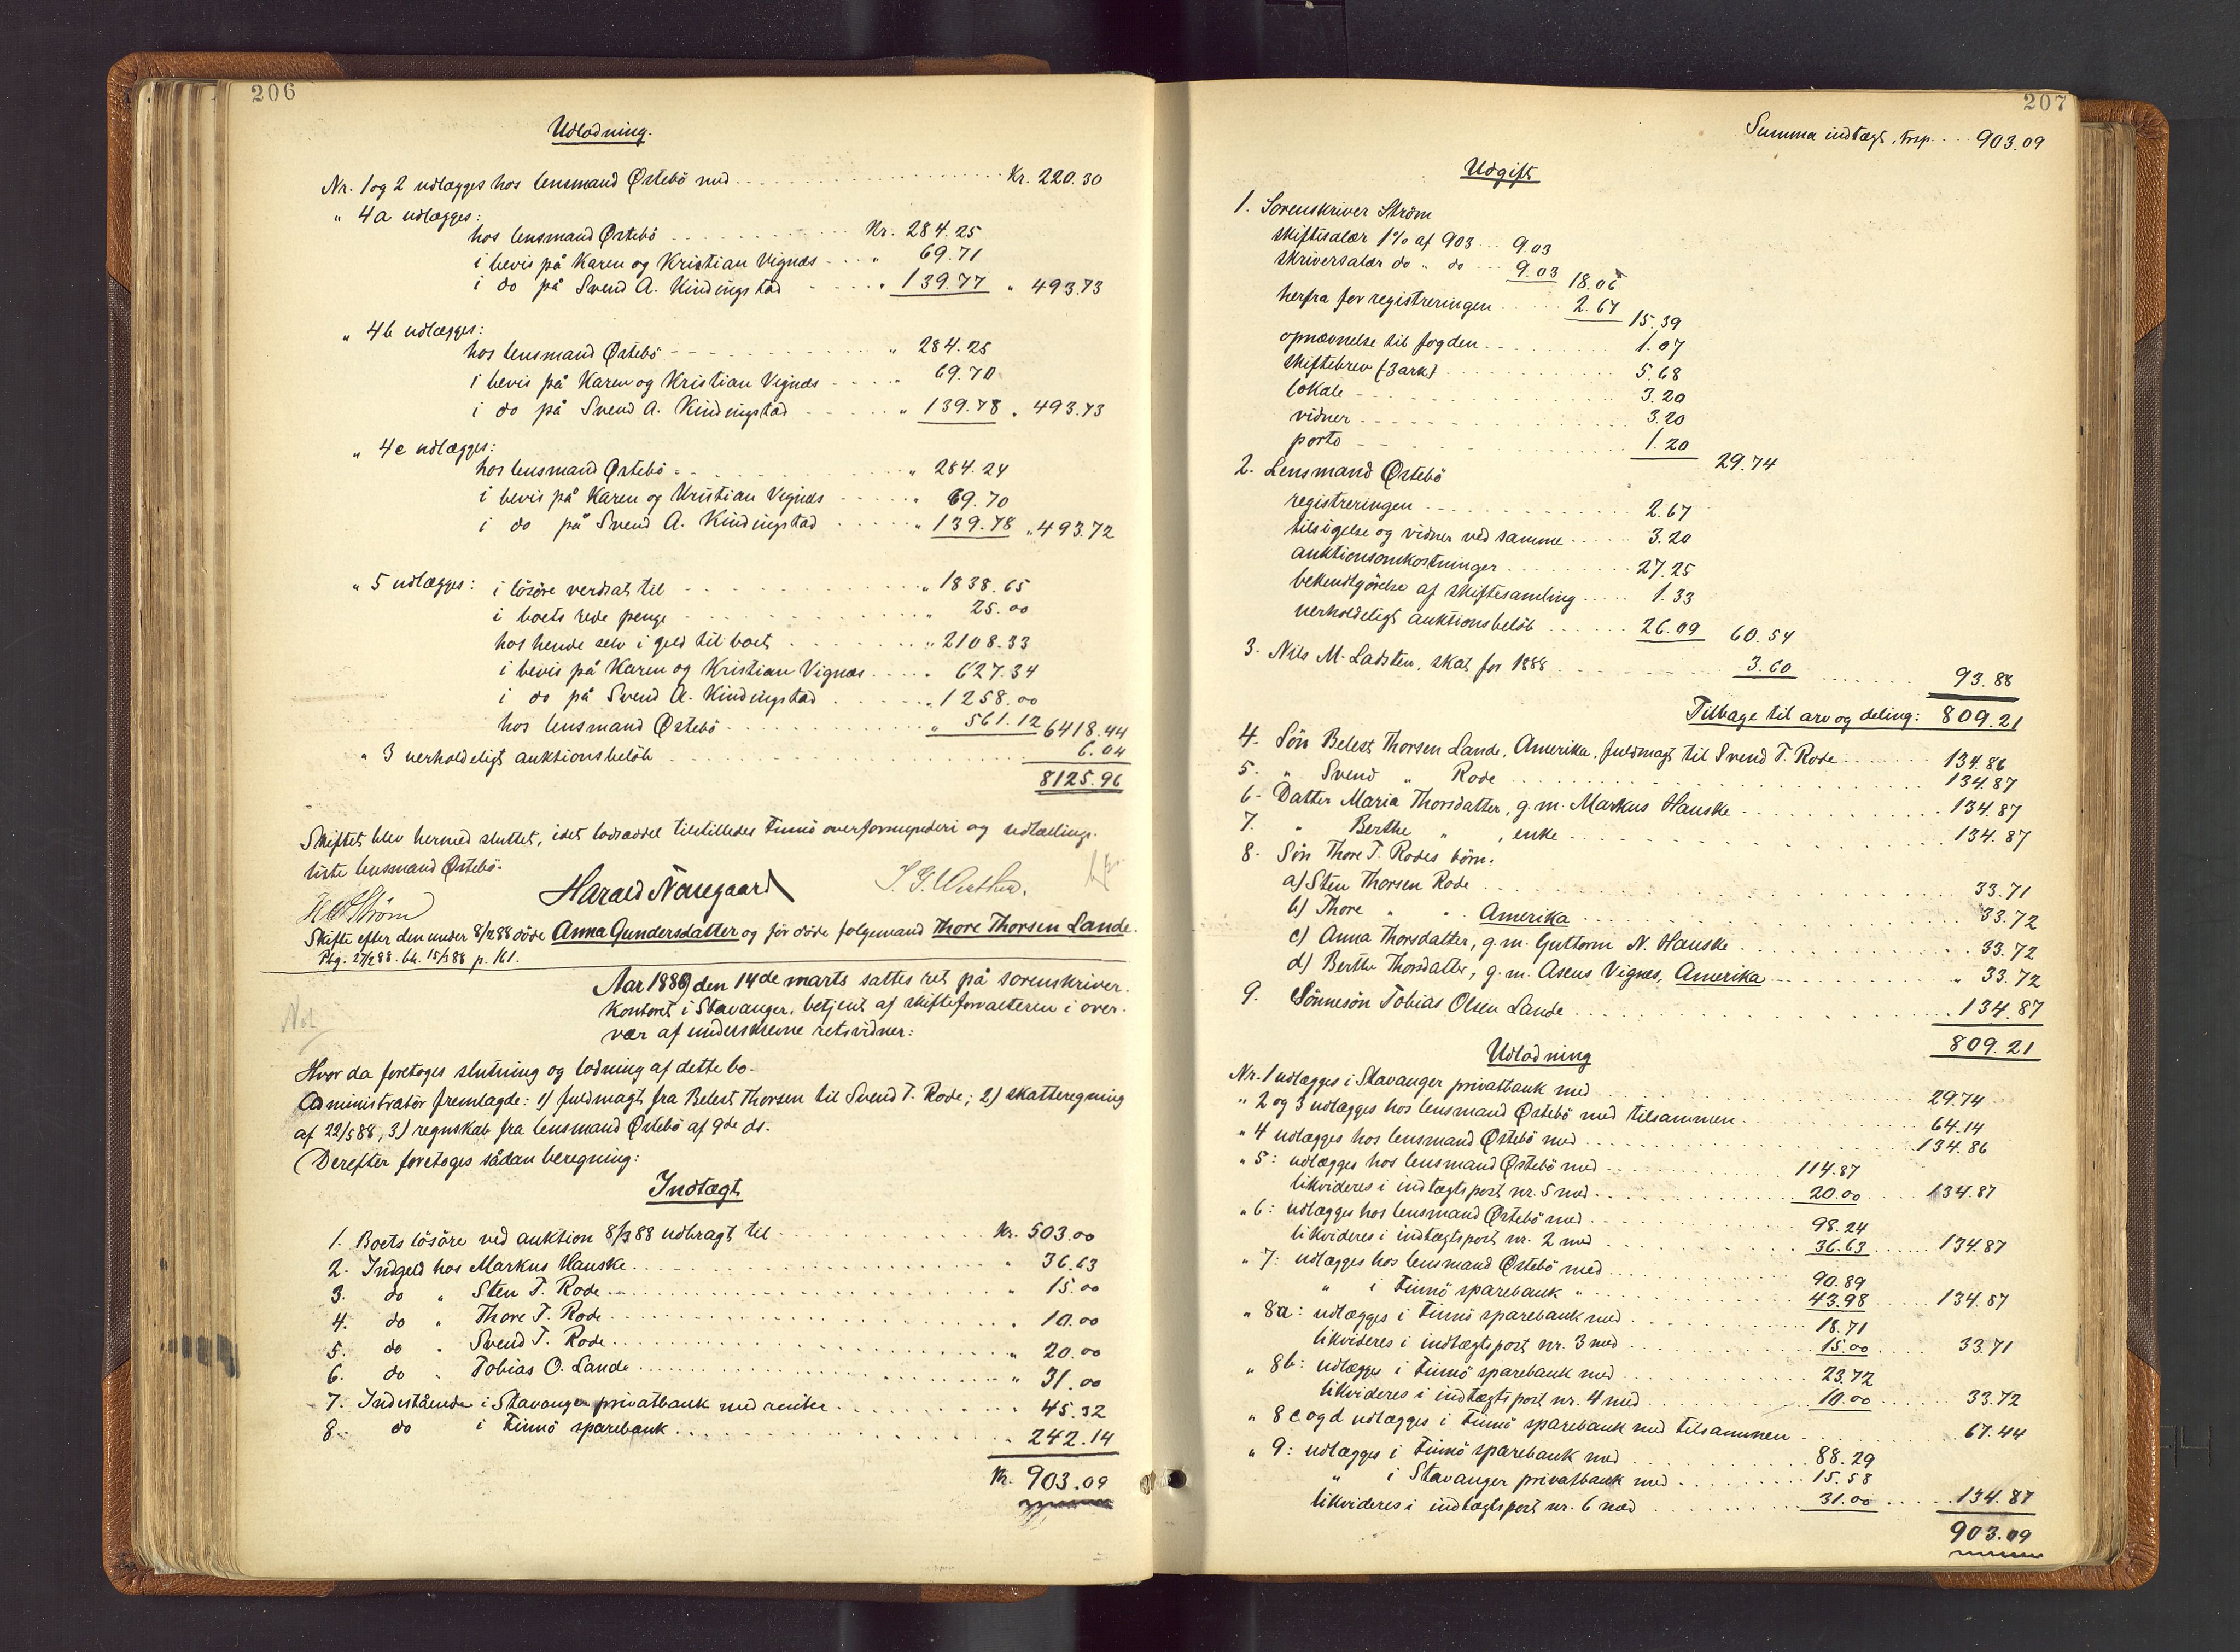 206
Udlodning.
Nr. 1 og 2 udlægges hos lensmand Østebö med Kr. 220.30
" 4a udlægges:
hos lensmand Østebö Kr. 284.25
i bevis på Karen og Kristian Vignæs " 69.71
i do på Svend A. Kindingstad " 139.77 " 493.73
" 4b udlægges:
hos lensmand Østebö " 284.25
i bevis på Karen og Kristian Vignæs " 69.70
i do på Svend A. Kindingstad " 139.78 " 493.73
" 4c udlægges:
hos lensmand Østebö " 284.24
i bevis på Karen og Kristian Vignæs " 69.70
i do på Svend A. Kindingstad " 139.78 " 493.72
" 5 udlægges: i lösöre verdsat til " 1838.65
i boets rede penge " 25.00
hos hende selv i gjeld til boet " 2108.33
i bevis på Karen og Kristian Vignæs " 627.34
i do på Svend A. Kindingstad " 1258.00
hos lensmand Østebö " 561.12 6418.44
" 3 uerholdeligt auktionsbelöb 6.04
8125.96
Skiftet blev hermed sluttet, idet lodseddel tilstilledes Finnö overformynderi og udtællings-
liste lensmand Østebö.
Ström Harald Norregaard
Skifte efter den under 8/2 88 döde Anna Gundersdatter og för döde følgemand Thore Thorsen Lande.
Reg. 27/2 88. bh. 15/3 88 p. 161.
Aar 1889 den 14de marts sattes ret på sorenskriver-
kontoret i Stavanger, betjent af skifteforvalteren i over-
vær af underskrevne retsvidner:
Not
Hvor da foretoges slutning og lodning af dette bo.
Administratör fremlagde: 1) fuldmagt fra Belest Thorsen til Svend T. Rode; 2) skatteregning
af 22/5 88, 3) regnskab fra lensmand Østebö af 9de ds.
Derefter foretoges sådan beregning:
Indtægt
1. Boets lösöre ved auktion 8/3 88 udbragt til Kr. 503.00
2. Indgjeld hos Markus Hauske " 36.63
3. do " Sten T. Rode " 15.00
4. do " Thore T. Rode " 10.00
5. do " Svend T. Rode " 20.00
6. do " Tobias O. Lande " 31.00
7. Indestående i Stavanger privatbank med renter " 45.32
8. do i Finnö sparebank " 242.14
Kr. 903.09
207
Summa indtægt, trsp. 903.09
Udgift
1. Sorenskriver Ström
skiftesalær 1% af 903 9.03
skriversalær do " do 9.03 18.06
herfra for registreringen 2.67 15.39
opnævnelse til fogden 1.07
skiftebrev (3 ark) 5.68
lokale 3.20
vidner 3.20
porto 1.20 29.74
2. Lensmand Østebö
registreringen 2.67
tilsigelse og vidner ved samme 3.20
auktionsomkostninger 27.25
bekendtgjörelse af skiftesamling 1.33
uerholdeligt auktionsbelöb 26.09 60.54
3. Nils M. Ladsten, skat for 1888 3.60 93.88
Tilbage til arv og deling: 809.21
4. Sön Belest Thorsen Lande, Amerika, fuldmagt til Svend T. Rode 134.86
5. " Svend " Rode 134.87
6. Datter Maria Thorsdatter, g.m. Markus Hauske 134.87
7. " Berthe " , enke 134.87
8. Sön Thore T. Rodes börn:
a) Sten Thorsen Rode 33.71
b) Thore " " Amerika 33.72
c) Anna Thorsdatter, g.m. Guttorm N. Hauske 33.72
d) Berthe Thorsdatter, g.m. Asens Vignes, Amerika " 33.72
9. Sönnesön Tobias Olsen Lande 134.87
809.21
Udlodning
Nr. 1 udlægges i Stavanger privatbank med 29.74
" 2 og 3 udlægges hos lensmand Østebö med tilsammen 64.14
" 4 udlægges hos lensmand Østebö med 134.86
" 5: udlægges hos lensmand Østebö med 114.87
likvideres i indtægtspost nr. 5 med 20.00 134.87
" 6: udlægges hos lensmand Østebö med 98.24
likvideres i indtægtspost nr. 2 med 36.63 134.87
" 7: udlægges hos lensmand Østebö med 90.89
" i Finnö sparebank " 43.98 134.87
" 8a: udlægges i Finnö sparebank med 18.71
likvideres i indtægtspost nr. 3 med 15.00 33.71
" 8b: udlægges i Finnö sparebank med 23.72
likvideres i indtægtspost nr. 4 med 10.00 33.72
" 8c og d udlægges i Finnö sparebank med tilsammen 67.44
" 9: udlægges i Finnö sparebank med 88.29
" i Stavanger privatbank med 15.58
likvideres i indtægtspost nr. 6 med 31.00 134.87
903.09